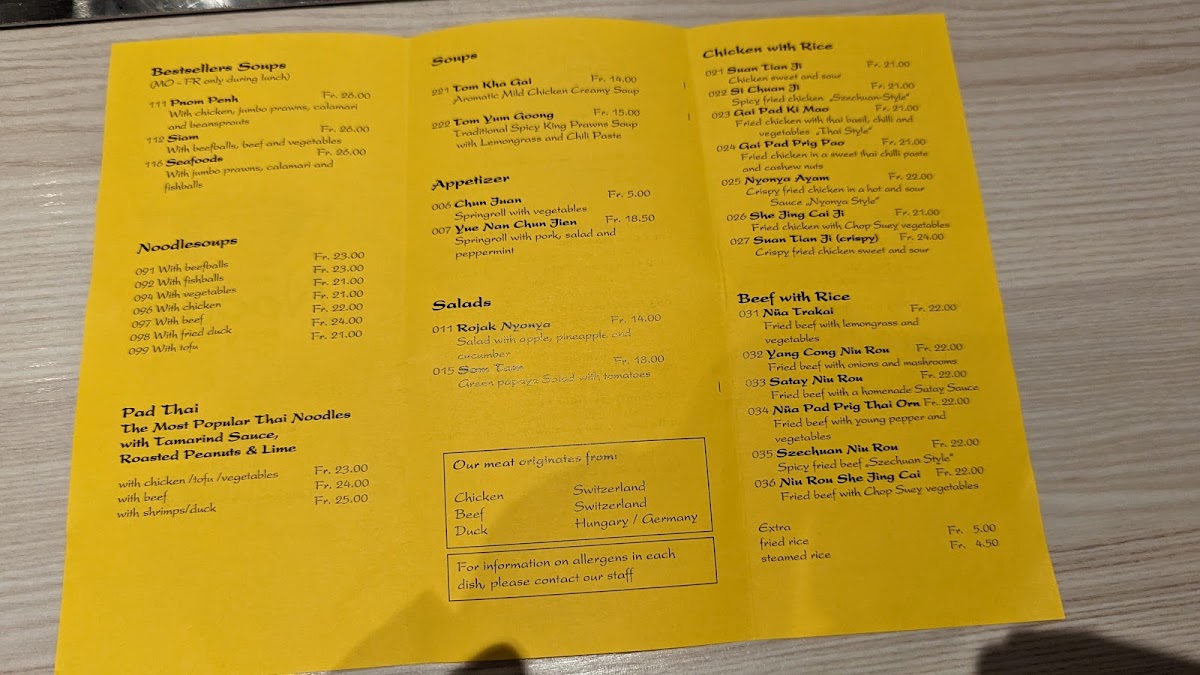 Bestsellers Soups
(MO - FR only during lunch)
111 Pnom Penh Fr. 26.00
With chicken, jumbo prawns, calamari
and beansprouts
112 Siam Fr. 26.00
With beefballs, beef and vegetables
116 Seafoods Fr. 26.00
With jumbo prawns, calamari and
fishballs
Noodlesoups
091 With beefballs Fr. 23.00
092 With fishballs Fr. 23.00
094 With vegetables Fr. 21.00
096 With chicken Fr. 21.00
097 With beef Fr. 22.00
098 With fried duck Fr. 24.00
099 With tofu Fr. 21.00
Pad Thai
The Most Popular Thai Noodles
with Tamarind Sauce,
Roasted Peanuts & Lime
with chicken /tofu /vegetables Fr. 23.00
with beef Fr. 24.00
with shrimps/duck Fr. 25.00
Soups
221 Tom Kha Gai Fr. 14.00
Aromatic Mild Chicken Creamy Soup
222 Tom Yum Goong Fr. 15.00
Traditional Spicy King Prawns Soup
with Lemongrass and Chili Paste
Appetizer
006 Chun Juan Fr. 5.00
Springroll with vegetables
007 Yue Nan Chun Jien Fr. 18.50
Springroll with pork, salad and
peppermint
Salads
011 Rojak Nyonya Fr. 14.00
Salad with apple, pineapple and
cucumber
015 Som Tam Fr. 18.00
Green papaya Salad with tomatoes
Our meat originates from:
Chicken Switzerland
Beef Switzerland
Duck Hungary / Germany
For information on allergens in each
dish, please contact our staff
Chicken with Rice
021 Suan Tian Ji Fr. 21.00
Chicken sweet and sour
022 Si Chuan Ji Fr. 21.00
Spicy fried chicken „Szechuan-Style“
023 Gai Pad Ki Mao Fr. 21.00
Fried chicken with thai basil, chilli and
vegetables „Thai Style“
024 Gai Pad Prig Pao Fr. 21.00
Fried chicken in a sweet thai chilli paste
and cashew nuts
025 Nyonya Ayam Fr. 22.00
Crispy fried chicken in a hot and sour
Sauce „Nyonya Style“
026 She Jing Cai Ji Fr. 21.00
Fried chicken with Chop Suey vegetables
027 Suan Tian Ji (crispy) Fr. 24.00
Crispy fried chicken sweet and sour
Beef with Rice
031 Nüa Trakai Fr. 22.00
Fried beef with lemongrass and
vegetables
032 Yang Cong Niu Rou Fr. 22.00
Fried beef with onions and mashrooms
033 Satay Niu Rou Fr. 22.00
Fried beef with a homenade Satay Sauce
034 Nüa Pad Prig Thai Orn Fr. 22.00
Fried beef with young pepper and
vegetables
035 Szechuan Niu Rou Fr. 22.00
Spicy fried beef „Szechuan Style“
036 Niu Rou She Jing Cai Fr. 22.00
Fried beef with Chop Suey vegetables
Extra
fried rice Fr. 5.00
steamed rice Fr. 4.50